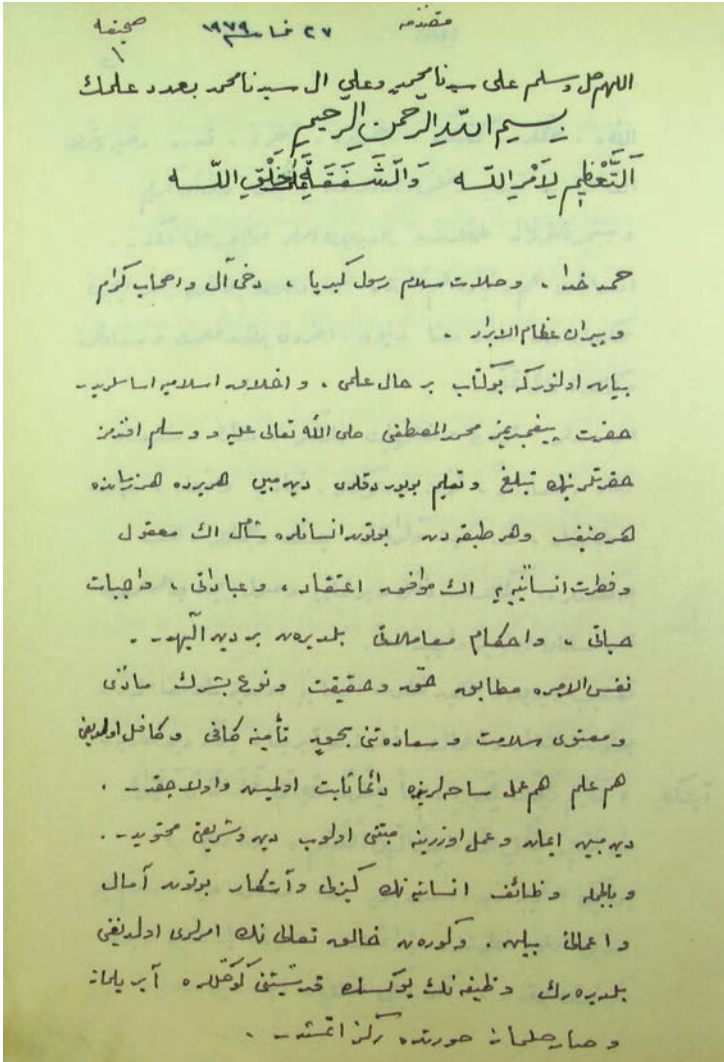 مقدمه
٢٧ مارت ١٩٧٩
صحيفه
١
اللهم صل وسلم على سيدنا محمد وعلى ال سيدنا محمد بعدد علمك
بسم الله الرحمن الرحيم
اَلتَّعْظِيمُ لِاَمْرِ اللّه وَالشَّفَقَةُ عَلَى خَلْقِ اللّه
حمد خدا ، وصلات سلام رسول كبريا ، دخى آل واصحاب كرام
و پيران عظام الابرار .
بيان اولنور كه بو كتاب بر حال علمى ، و اخلاق اسلاميه اساسلريدر
حضرت پيغمبريمز محمد المصطفى صلى الله تعالى عليه و وسلم افندمز
حضرتلرينك تبليغ و تعليم بويوردقلرى دين مبين هريرده هر زمانده
هر صنف وهر طبقه دن بوتون انسانلره شامل اك معقول
وفطرت انسانيه يه اك موافق اعتقاد ، و عباداتى ، واجبات
حياتى ، واحكام معاملاتى بلديرن بر دين الٓهيدر .
نفس الامره مطابق حق وحقيقت ونوع بشرك مادّى
ومعنوى سلامت و سعادتنى بحق تأمينه كافى وكافل اولديغى
هم علم هم عمل ساحه لرنده دائما ثابت اولميش واولاجقدر .
دين مبين ايمان و عمل اوزرينه مبتنى اولوب دين وشريعتى محتويدر .
و بالجمله وظائف انسانيه نك كيزلى وآشكار بوتون آمال
و اعمالى بيلن . وكورن خالق تعالى نك امرلرى اولديغنى
بلديره رك وظيفه نك يوكسك قدسيتنى كوكللره آيريلماز
و صارصلماز صورتده ركز اتمشدر .